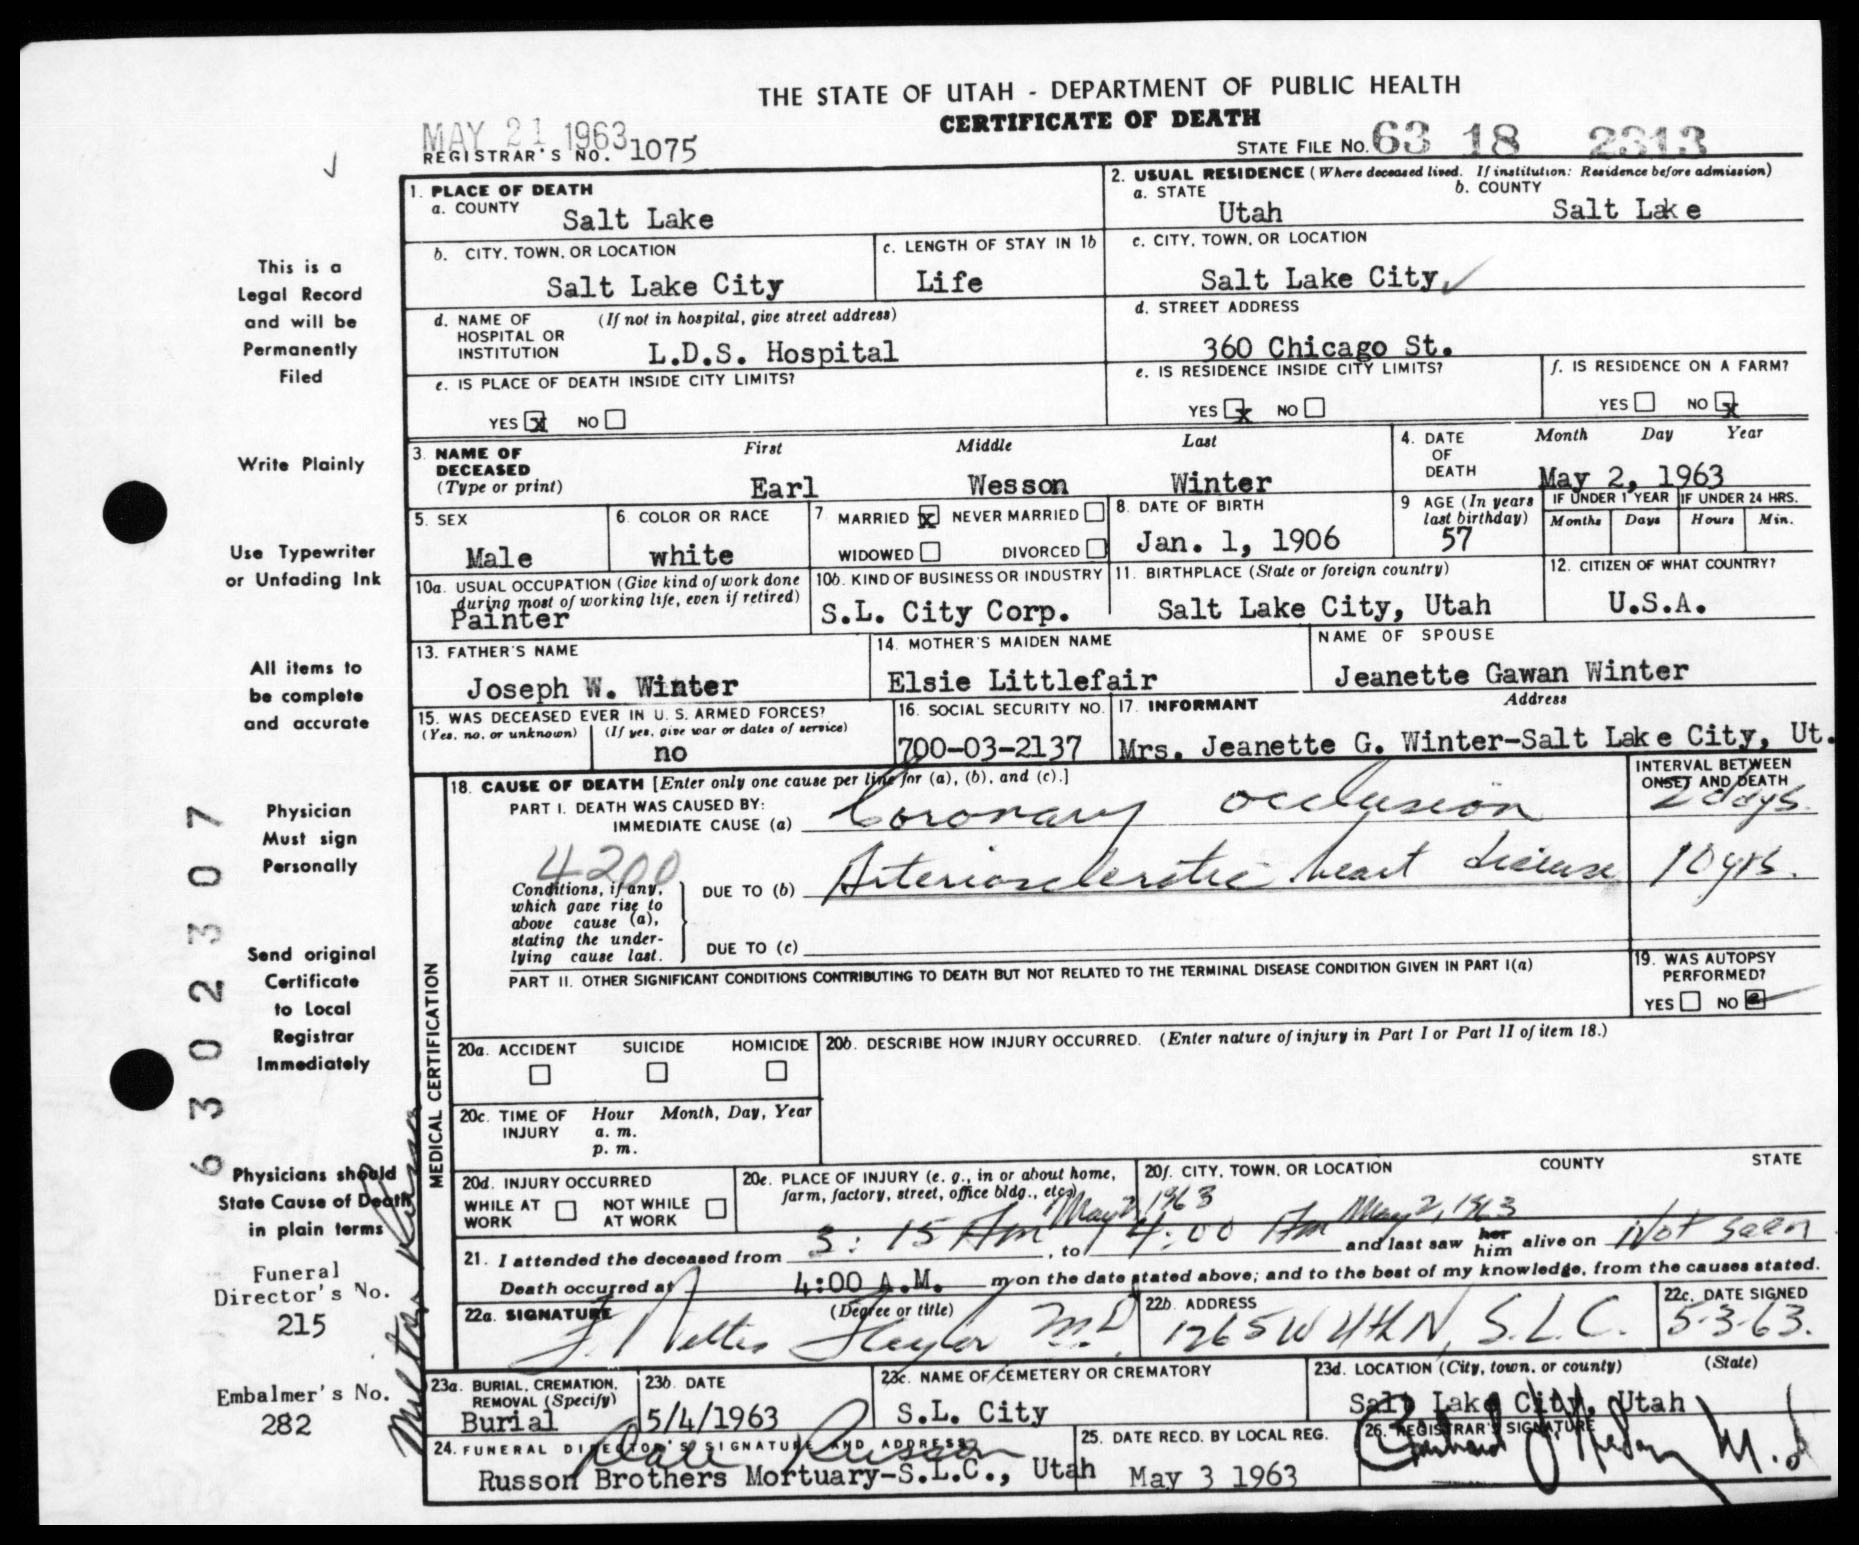 THE STATE OF UTAH - DEPARTMENT OF PUBLIC HEALTH
CERTIFICATE OF DEATH
MAY 21 1963
REGISTRAR'S NO. 1075
STATE FILE NO. 63 18 2313
1. PLACE OF DEATH
a. COUNTY Salt Lake
2. USUAL RESIDENCE (Where deceased lived. If institution: Residence before admission)
a. STATE Utah b. COUNTY Salt Lake
b. CITY, TOWN, OR LOCATION Salt Lake City
c. LENGTH OF STAY IN 1b Life
c. CITY, TOWN, OR LOCATION Salt Lake City
d. NAME OF HOSPITAL OR INSTITUTION (If not in hospital, give street address) L.D.S. Hospital
d. STREET ADDRESS 360 Chicago St.
e. IS PLACE OF DEATH INSIDE CITY LIMITS?
YES x NO
e. IS RESIDENCE INSIDE CITY LIMITS?
YES x NO
f. IS RESIDENCE ON A FARM?
YES NO x
3. NAME OF DECEASED (Type or print)
First Middle Last
Earl Wesson Winter
4. DATE OF DEATH Month Day Year
May 2, 1963
5. SEX Male
6. COLOR OR RACE white
7. MARRIED x NEVER MARRIED
WIDOWED DIVORCED
8. DATE OF BIRTH Jan. 1, 1906
9 AGE (In years last birthday) 57
IF UNDER 1 YEAR Months Days
IF UNDER 24 HRS. Hours Min.
10a. USUAL OCCUPATION (Give kind of work done during most of working life, even if retired) Painter
10b. KIND OF BUSINESS OR INDUSTRY S.L. City Corp.
11. BIRTHPLACE (State or foreign country) Salt Lake City, Utah
12. CITIZEN OF WHAT COUNTRY? U.S.A.
13. FATHER'S NAME Joseph W. Winter
14. MOTHER'S MAIDEN NAME Elsie Littlefair
NAME OF SPOUSE Jeanette Gawan Winter
15. WAS DECEASED EVER IN U. S. ARMED FORCES?
(Yes, no, or unknown) (If yes, give war or dates of service) no
16. SOCIAL SECURITY NO. 700-03-2137
17. INFORMANT Address
Mrs. Jeanette G. Winter-Salt Lake City, Ut.
MEDICAL CERTIFICATION
18. CAUSE OF DEATH [Enter only one cause per line for (a), (b), and (c).]
INTERVAL BETWEEN ONSET AND DEATH
PART I. DEATH WAS CAUSED BY:
IMMEDIATE CAUSE (a) Coronary occlusion 2 days.
4200
Conditions, if any, which gave rise to above cause (a), stating the underlying cause last.
DUE TO (b) Arteriosclerotic heart disease 10 yrs.
DUE TO (c)
PART II. OTHER SIGNIFICANT CONDITIONS CONTRIBUTING TO DEATH BUT NOT RELATED TO THE TERMINAL DISEASE CONDITION GIVEN IN PART I(a)
19. WAS AUTOPSY PERFORMED?
YES NO
20a. ACCIDENT SUICIDE HOMICIDE
20b. DESCRIBE HOW INJURY OCCURRED. (Enter nature of injury in Part I or Part II of item 18.)
20c. TIME OF INJURY Hour a. m. p. m. Month, Day, Year
20d. INJURY OCCURRED
WHILE AT WORK NOT WHILE AT WORK
20e. PLACE OF INJURY (e. g., in or about home, farm, factory, street, office bldg., etc.)
20f. CITY, TOWN, OR LOCATION COUNTY STATE
21. I attended the deceased from 3:15 Am May 2, 1963, to 4:00 Am May 2, 1963 and last saw her him alive on Not seen
Death occurred at 4:00 A.M. m on the date stated above; and to the best of my knowledge, from the causes stated.
22a. SIGNATURE (Degree or title)
M.D.
22b. ADDRESS 1265 W 4th N, S.L.C.
22c. DATE SIGNED 5-3-63.
23a. BURIAL, CREMATION, REMOVAL (Specify) Burial
23b. DATE 5/4/1963
23c. NAME OF CEMETERY OR CREMATORY S.L. City
23d. LOCATION (City, town, or county) (State)
Salt Lake City, Utah
24. FUNERAL DIRECTOR'S SIGNATURE AND ADDRESS
Dale Russon
Russon Brothers Mortuary-S.L.C., Utah
25. DATE RECD. BY LOCAL REG. May 3 1963
26. REGISTRAR'S SIGNATURE
M.D
This is a
Legal Record
and will be
Permanently
Filed
Write Plainly
Use Typewriter
or Unfading Ink
All items to
be complete
and accurate
Physician
Must sign
Personally
Send original
Certificate
to Local
Registrar
Immediately
Physicians should
State Cause of Death
in plain terms
Funeral
Director's No.
215
Embalmer's No.
282
6302307
Milton Russon